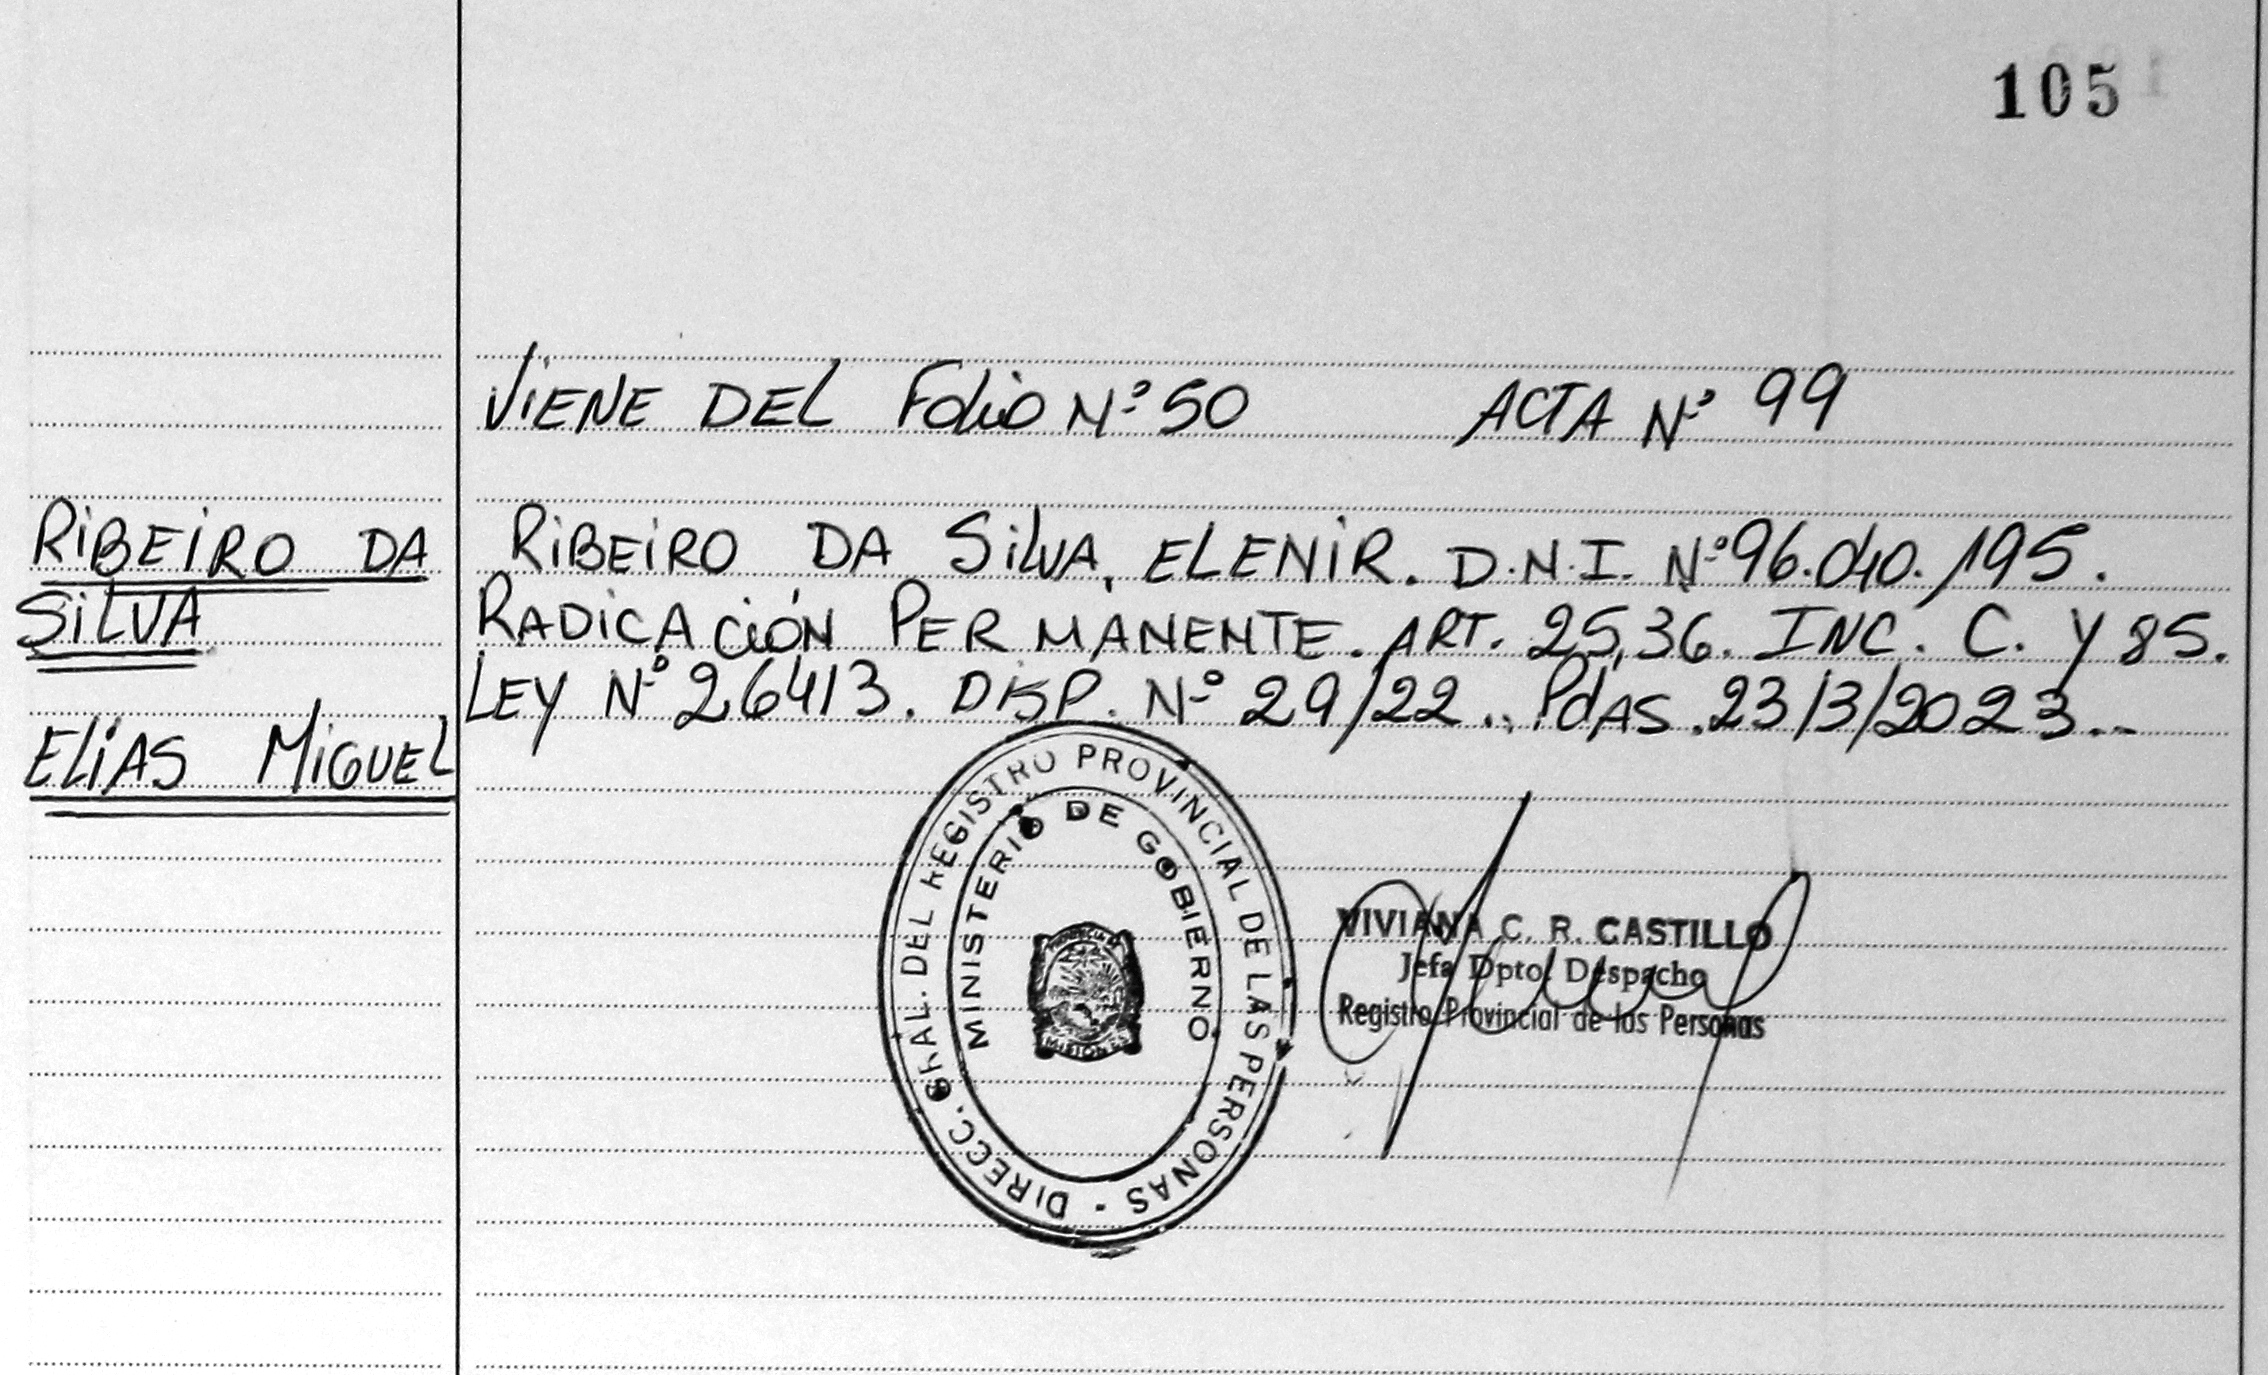 105
VIENE DEL Folio Nº 50 ACTA Nº 99
RIBEIRO DA
SILVA
ELIAS MIGUEL
RIBEIRO DA SILVA, ELENIR. D.N.I. Nº 96.040.195.
RADICACIÓN PERMANENTE. ART. 25,36. INC. C. Y 85.
LEY Nº 26413. DISP. Nº 29/22.. Pdas. 23/3/2023..-
DIRECC. GRAL. DEL REGISTRO PROVINCIAL DE LAS PERSONAS -
MINISTERIO DE GOBIERNO
MISIONES
VIVIANA C. R. CASTILLO
Jefa Dpto. Despacho
Registro Provincial de las Personas